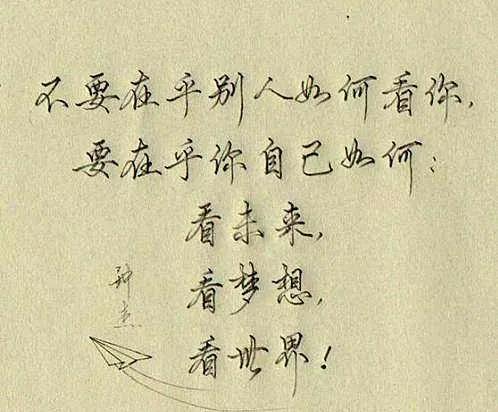 不要在乎别人如何看你,
要在乎你自己如何:
看未来,
看梦想,
看世界!
钟杰